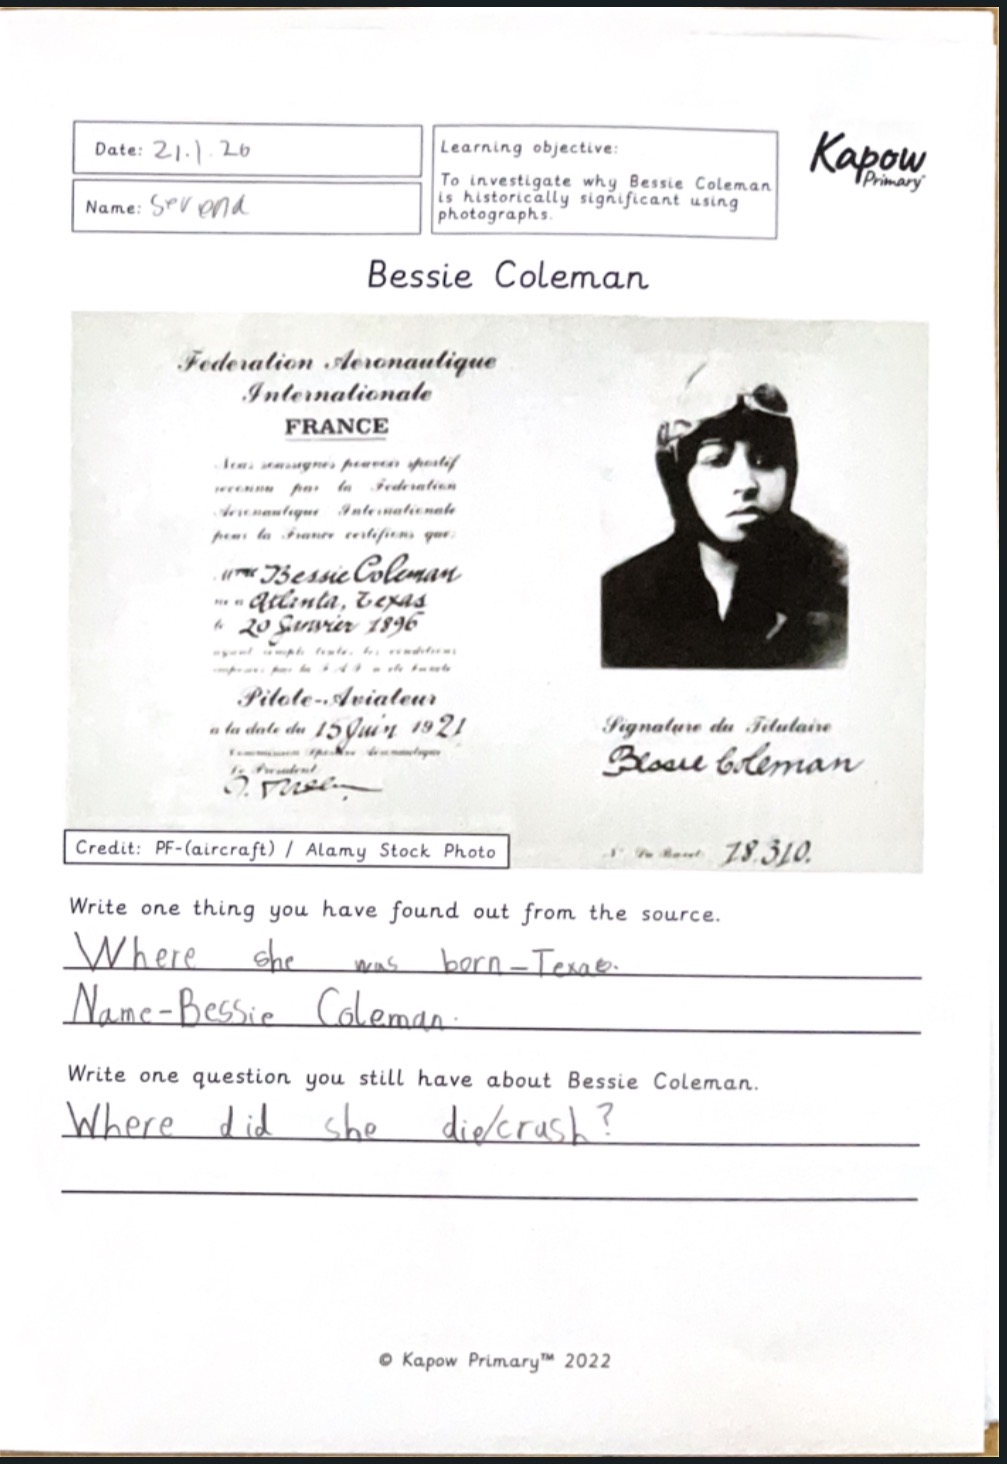 Date: 21.1.26
Name: Serend
Learning objective:
To investigate why Bessie Coleman
is historically significant using
photographs.
Kapow
Primary
Bessie Coleman
Federation Aeronautique
Internationale
FRANCE
Nous soussignes pouvoir sportif
reconnu par la Federation
Aeronautique Internationale
pour la France certifions que:
Mme Bessie Coleman
Atlanta, Texas
le 20 Janvier 1896
Pilote-Aviateur
a la date du 15 Juin 1921
Le President
Signature du Titulaire
Bessie Coleman
18.310.
Credit: PF-(aircraft) / Alamy Stock Photo
Write one thing you have found out from the source.
Where she was born-Texas.
Name-Bessie Coleman.
Write one question you still have about Bessie Coleman.
Where did she die/crush?
© Kapow Primary™ 2022